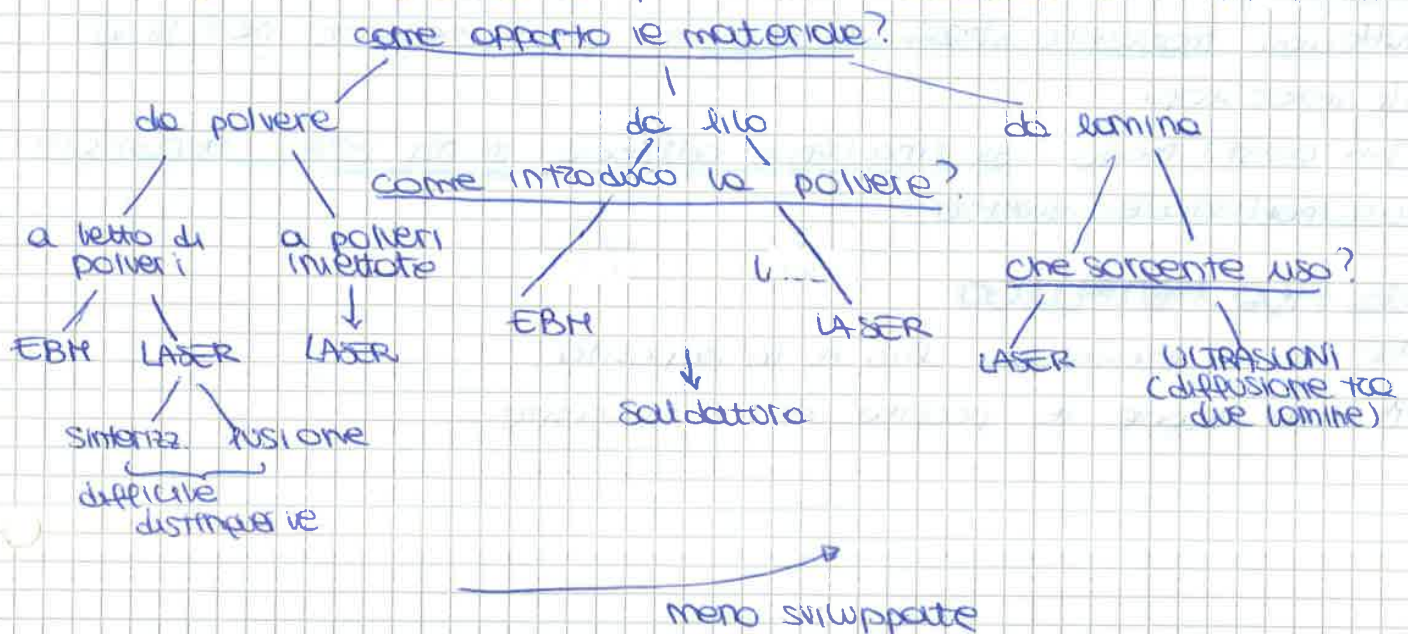 come apporto il materiale?
da polvere
da filo
da lamina
come introduco la polvere?
a letto di polveri
a polveri iniettate
che sorgente uso?
EBM
LASER
LASER
EBM
LASER
LASER
ULTRASUONI
(diffusione tra
due lamine)
saldatura
sinterizz.
fusione
difficile
distinguerle
meno sviluppate